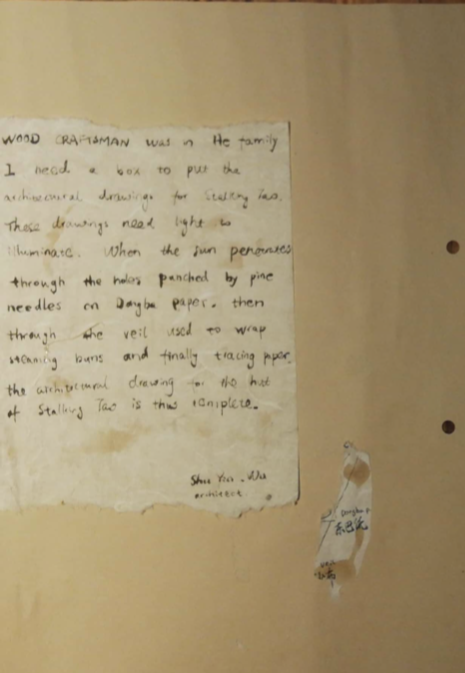 WOOD CRAFTSMAN was in He family
I need a box to put the
architectural drawings for Stalking Tao.
These drawings need light to
illuminate. When the sun penetrates
through the holes punched by pine
needles on Dongba paper. then
through the veil used to wrap
steaming buns and finally tracing paper,
the architectural drawing for the hut
of Stalking Tao is thus complete.
Shu Yin . Wu
architect
Dongba P
东巴纸